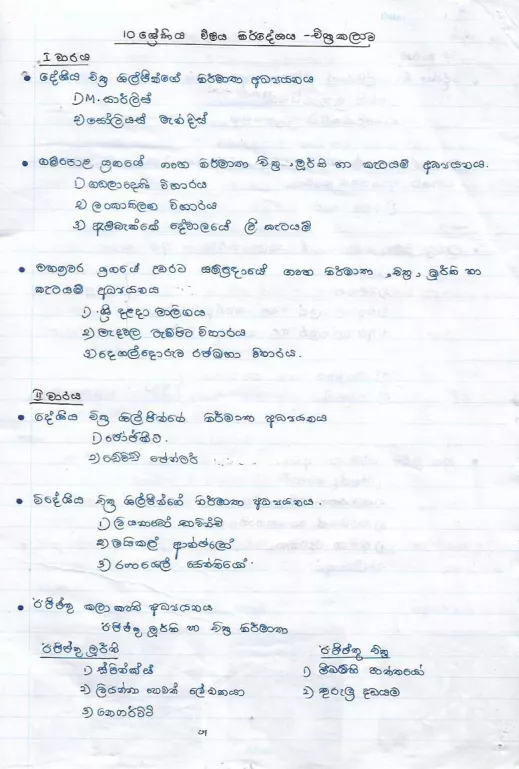 10 ශ්‍රේණිය විෂය නිර්දේශය - චිත්‍ර කලාව
I වාරය
• දේශීය චිත්‍ර ශිල්පීන්ගේ නිර්මාණ අධ්‍යයනය
1) M. සාර්ලිස්
2) සෝලියස් මැන්දිස්
• ගම්පොළ යුගයේ ගෘහ නිර්මාණ චිත්‍ර, මූර්ති හා කැටයම් අධ්‍යයනය.
1) ගඩලාදෙණි විහාරය
2) ලංකාතිලක විහාරය
3) ඇම්බැක්කේ දේවාලයේ ලී කැටයම්
• මහනුවර යුගයේ උඩරට සම්ප්‍රදායේ ගෘහ නිර්මාණ, චිත්‍ර, මූර්ති හා
කැටයම් අධ්‍යයනය
1) ශ්‍රී දළදා මාලිගය
2) මැදවල ටැම්පිට විහාරය
3) දෙගල්දොරුව රජමහා විහාරය.
II වාරය
• දේශීය චිත්‍ර ශිල්පීන්ගේ නිර්මාණ අධ්‍යයනය
1) ජෝර්ජ් කීට්.
2) ඩේව්ඩ් පේන්ටර්
• විදේශීය චිත්‍ර ශිල්පීන්ගේ නිර්මාණ අධ්‍යයනය.
1) ලියනාඩෝ ඩාවින්චි
2) මයිකල් ආන්ජලෝ
3) රෆායෙල් සැන්තියෝ.
• ඊජිප්තු කලා කෘති අධ්‍යයනය
ඊජිප්තු මූර්ති හා චිත්‍ර නිර්මාණ
ඊජිප්තු මූර්ති ඊජිප්තු චිත්‍ර
1) ස්පින්ක්ස් 1)
2) ලියන්නා හෙවත් ලේඛකයා 2) කුරුලු දඩයම
3) නෙෆර්ටිටි